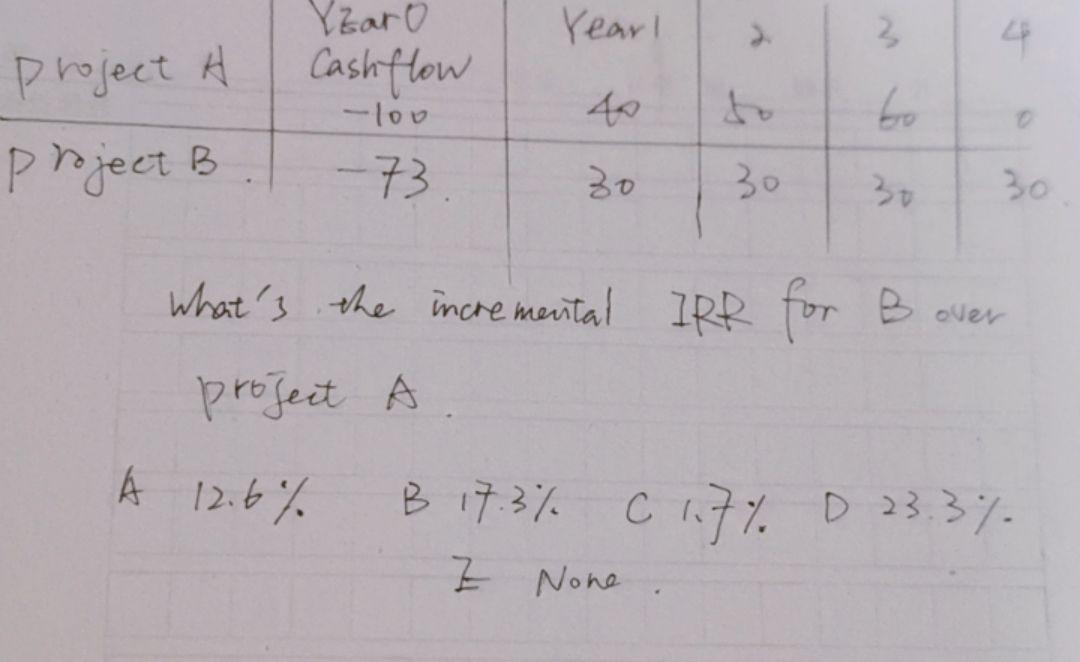 Year0 Year1 2 3 4
project A Cashflow
-100 40 50 60 0
project B. -73. 30 30 30 30
What's the incremental IRR for B over
project A.
A 12.6% B 17.3% C 1.7% D 23.3%.
E None.